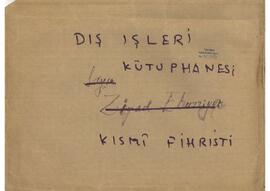 DIŞ İŞLERİ
KÜTUPHANESİ
Ziyad Ebüzziya
KISMÎ FİHRİSTİ